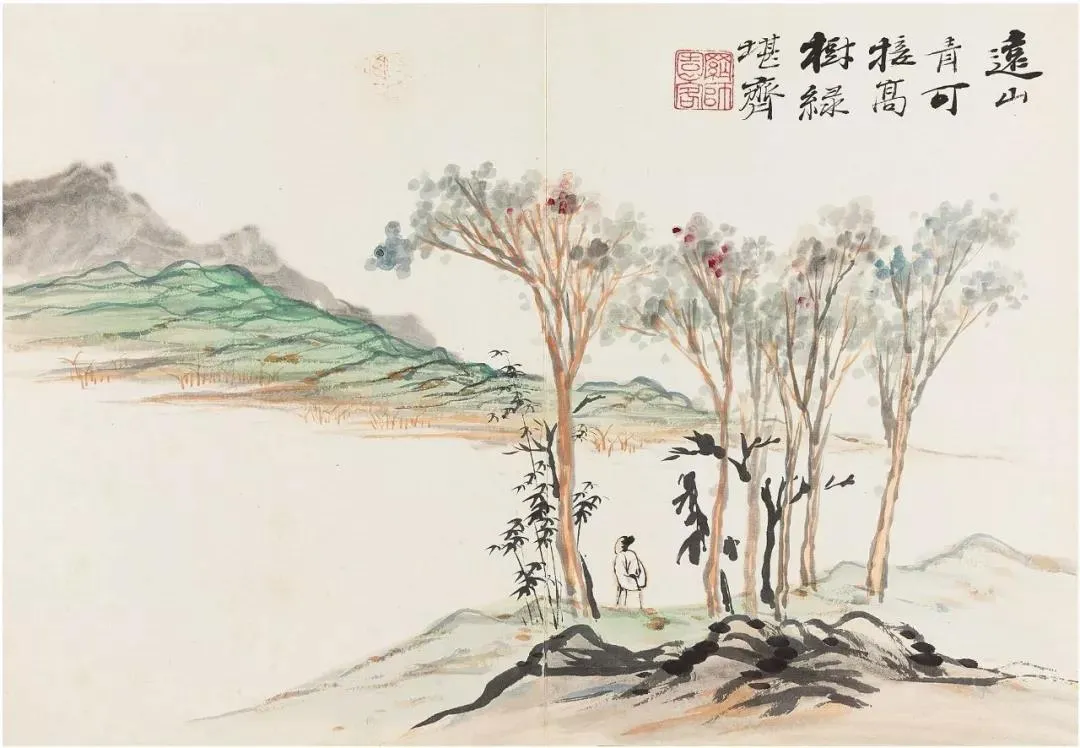 遠山
青可
接高
樹綠
堪齊